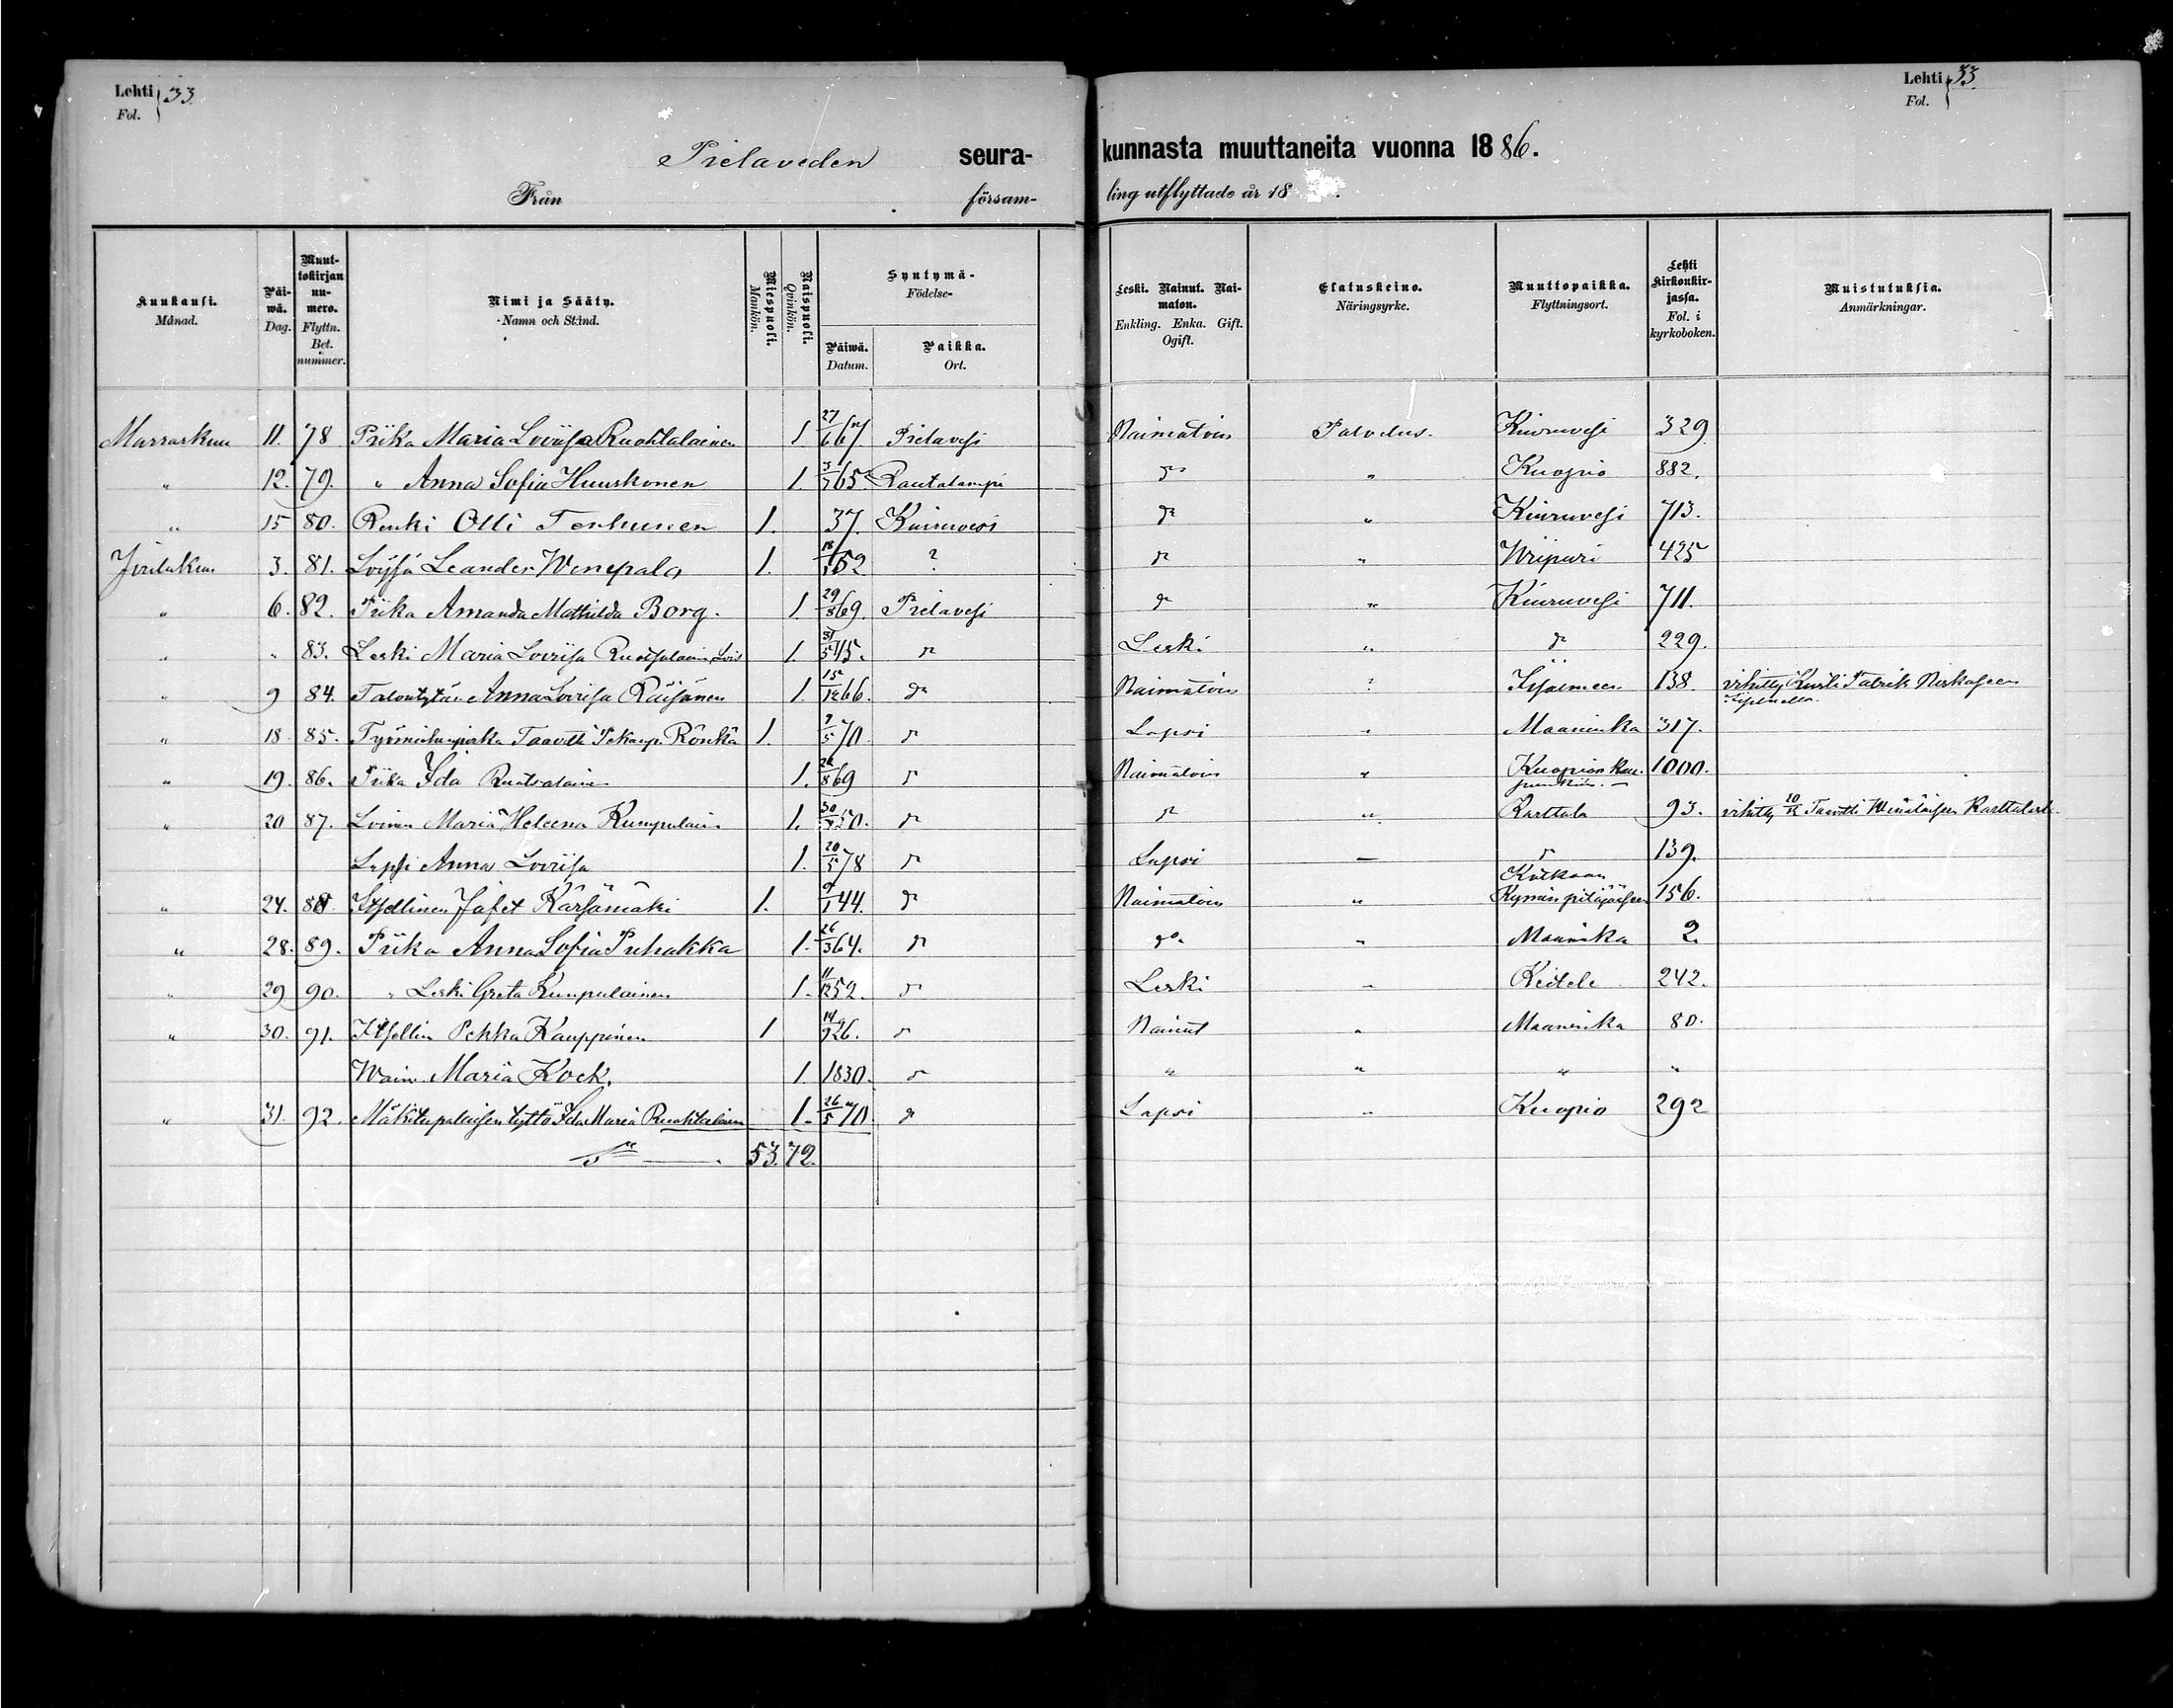 Lehti 33
Fol.
Lehti 33
Fol.
Pielaveden seura- kunnasta muuttaneita vuonna 1886.
Från försam- ling utflyttade år 18 .
Kuukausi. Månad. Päiwä. Dag. Muuttokirjan numero. Flyttn. Bet. nummer. Nimi ja Sääty. Namn och Stånd. Miespuoli. Mankön. Naispuoli. Qvinkön. Syntymä- Födelse- Päiwä. Datum. Paikka. Ort. Leski. Nainut. Naimaton. Enkling. Enka. Gift. Ogift. Elatuskeino. Näringsyrke. Muuttopaikka. Flyttningsort. Lehti kirkonkirjassa. Fol. i kyrkoboken. Muistutuksia. Anmärkningar.
Marraskuu 11. 78 Piika Maria Loviisa Ruohtalainen 1 27/6 67 Pielavesi Naimatoin Palvelus. Kiuruvesi 329
" 12. 79. " Anna Sofia Huuskonen 1. 3/7 65 Rautalampi do " Kuopio 882.
" 15 80. Renki Olli Tenhunen 1. 37. Kiuruvesi do " Kiuruvesi 713.
Joulukuu 3. 81. Leander 1. 52 ? do " Wiipuri 425
" 6. 82. Piika Amanda Mathilda Borg. 1. 29/8 69. Pielavesi do " Kiuruvesi 711.
" " 83. Leski Maria Loviisa 1. 31/5 45. do Leski " do 229.
" 9 84. Anna Loviisa Räisänen 1. 15/12 66. do Naimatoin ? Iisalmeen 138. vihitty Patrik Niskaseen
" 18 85. Taavetti Rönkä 1. 9/5 70. do Lapsi " Maaninka 317.
" 19. 86. Piika Ida Ruotsalainen 1. 26/8 69 do Naimatoin " Kuopion 1000.
" 20 87. Maria Heleena Kumpulain 1. 50. do do " Karttula 93. vihitty Taavetti
Lapsi Anna Loviisa 1. 20/5 78 do Lapsi — do 139.
" 24. 88. Itsellinen Jafet Kärsämäki 1. 9/1 44. do Naimatoin " Kymin pitäjääseen 156.
" 28. 89. Piika Anna Sofia Puhakka 1. 26/3 64. do do. " Maaninka 2.
" 29 90. " Leski Greta Kumpulainen 1. 11/12 52. do Leski " Keitele 242.
" 30. 91. Itsellin Pekka Kauppinen 1 14/9 26. do Nainut " Maaninka 80.
Waim Maria Kock. 1. 1830. do " " " "
" 31. 92. Mäkitupalaisen tyttö Ida Maria Ruohtalainen 1. 26/5 70. do Lapsi " Kuopio 292
53. 72.